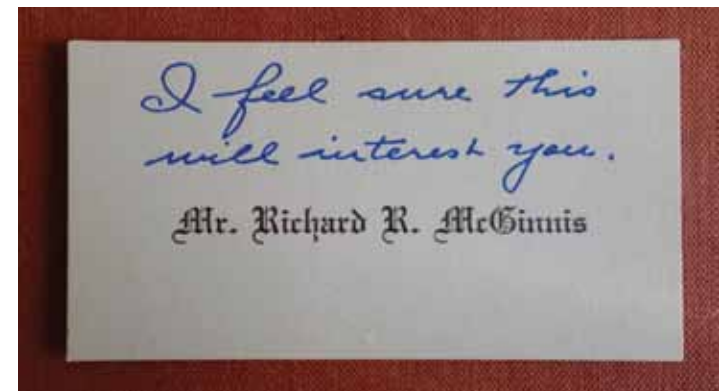 I feel sure this
will interest you.
Mr. Richard R. McGinnis